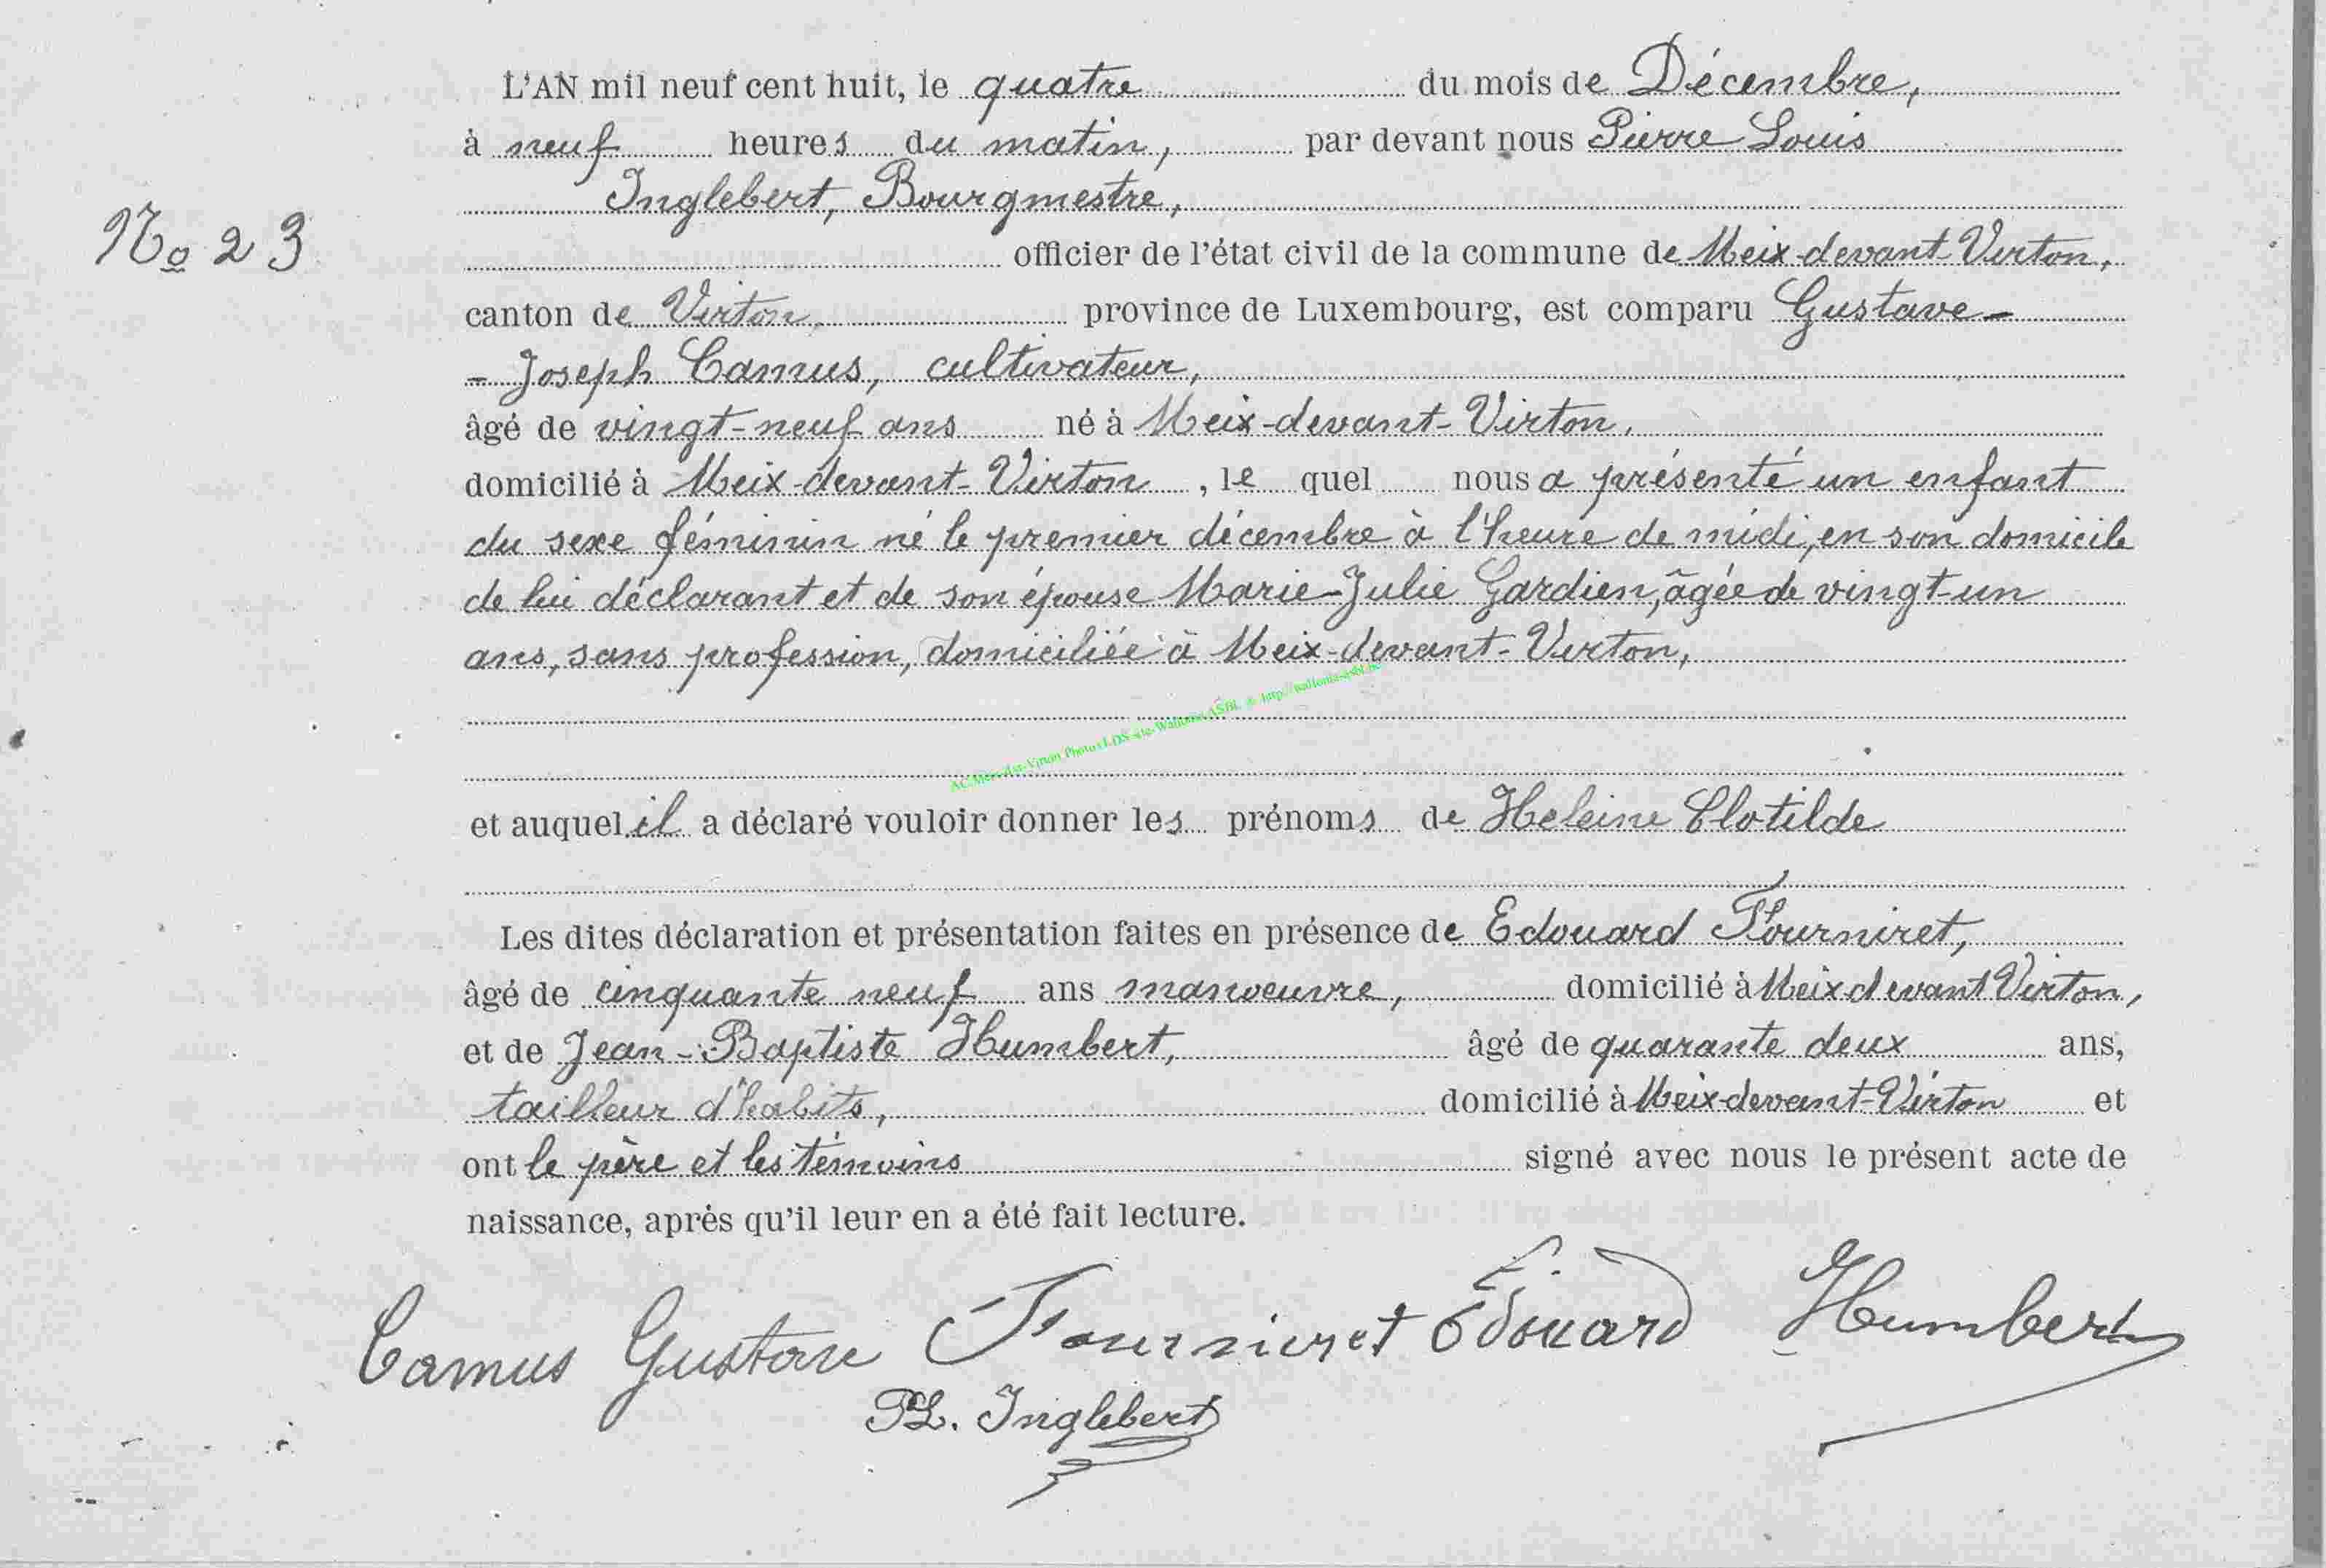 L'AN mil neuf cent huit, le quatre du mois de Décembre,
à neuf heures du matin, par devant nous Pierre Louis
Inglebert, Bourgmestre,
No 23
officier de l'état civil de la commune de Meix-devant-Virton,
canton de Virton, province de Luxembourg, est comparu Gustave-
- Joseph Camus, cultivateur,
âgé de vingt-neuf ans né à Meix-devant-Virton,
domicilié à Meix-devant-Virton, le quel nous a présenté un enfant
du sexe féminin né le premier décembre à l'heure de midi, en son domicile
de lui déclarant et de son épouse Marie-Julie Gardien, âgée de vingt-un
ans, sans profession, domiciliée à Meix-devant-Virton,
AC Meix-dvt-Virton Photos LDS site-Wallonia ASBL © http://wallonia-asbl.be
et auquel il a déclaré vouloir donner les prénoms de Heleine Clotilde
Les dites déclaration et présentation faites en présence de Edouard Fourniret,
âgé de cinquante neuf ans manoeuvre, domicilié à Meix devant Virton,
et de Jean-Baptiste Humbert, âgé de quarante deux ans,
tailleur d'habits, domicilié à Meix-devant-Virton et
ont le père et les témoins signé avec nous le présent acte de
naissance, après qu'il leur en a été fait lecture.
Camus Gustave Fournieret Edouard Humbert
PL. Inglebert